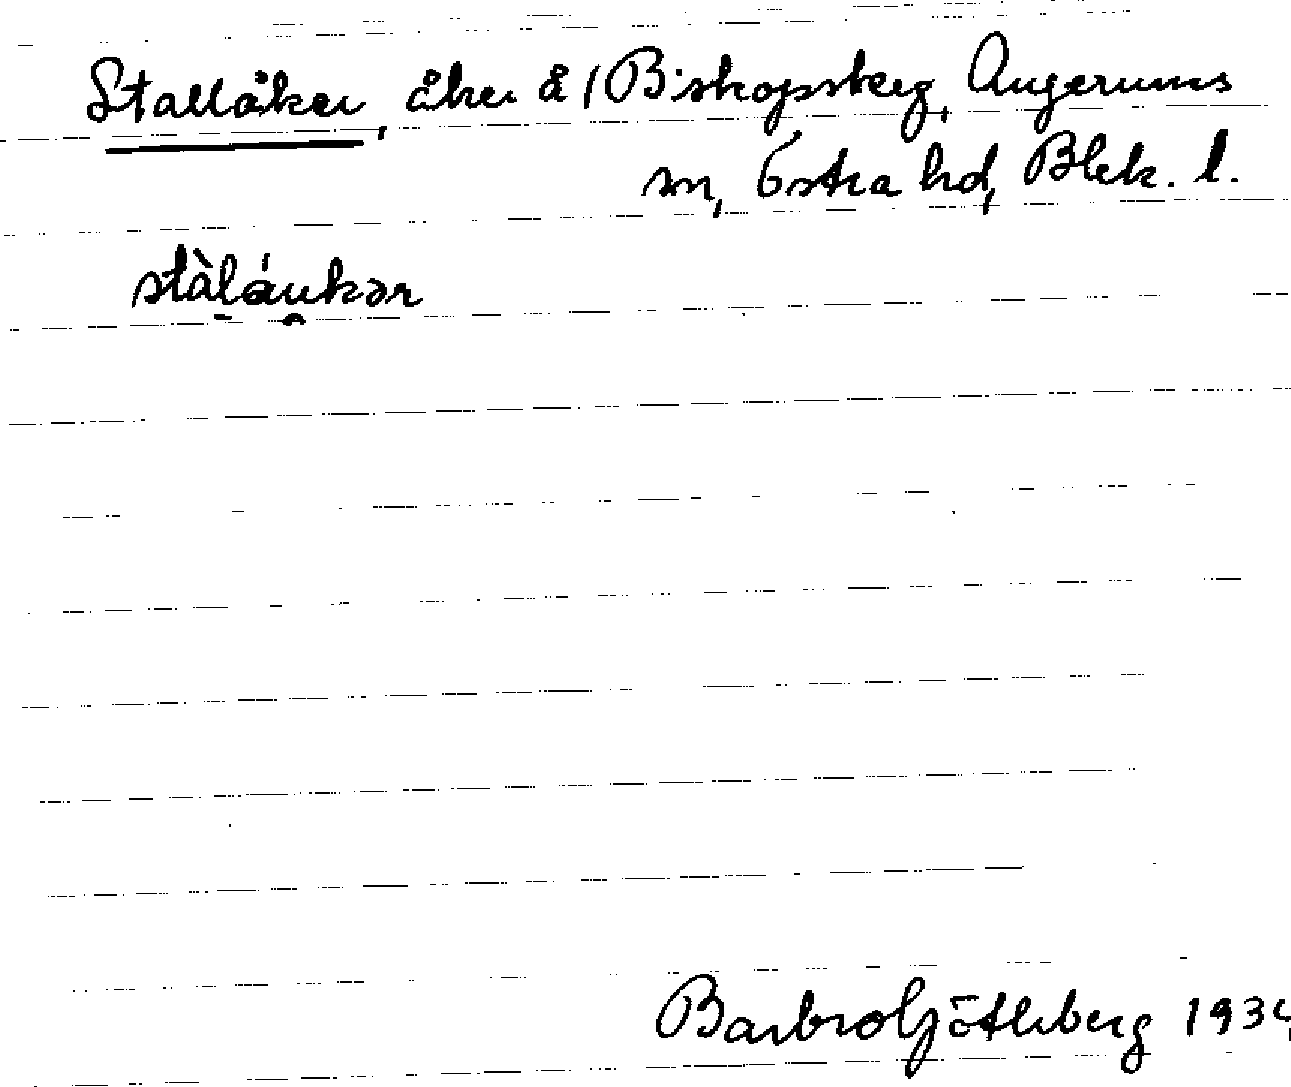 Stallåker, åker å 1 Biskopsberg, Augerums
sn, Östra hd, Blek. l.
stàláukər
Barbro Götleberg 1934